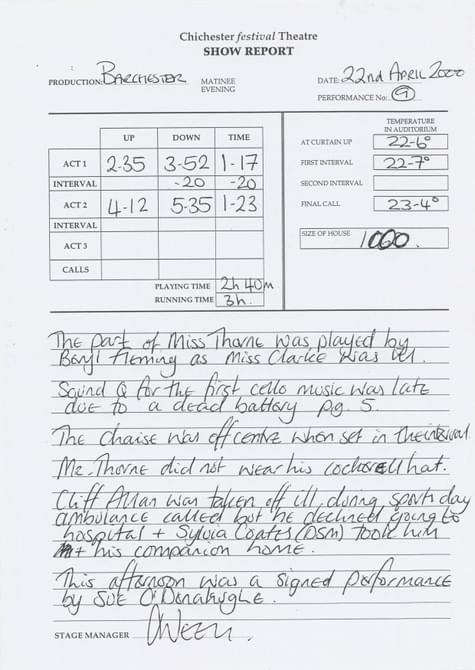 Chichester festival Theatre
SHOW REPORT
PRODUCTION: BARCHESTER MATINEE DATE: 22nd APRIL 2000
EVENING PERFORMANCE No: 9
UP DOWN TIME
ACT 1 2-35 3-52 1-17
INTERVAL -20 -20
ACT 2 4-12 5-35 1-23
INTERVAL
ACT 3
CALLS
PLAYING TIME 2h 40M
RUNNING TIME 3h.
TEMPERATURE
IN AUDITORIUM
AT CURTAIN UP 22-6°
FIRST INTERVAL 22-7°
SECOND INTERVAL
FINAL CALL 23-4°
SIZE OF HOUSE 1060.
The part of Miss Thorne was played by
Beryl Fleming as Miss Clarke was ill.
Sound Q for the first cello music was late
due to a dead battery pg. 5.
The chaise was off centre when set in the interval.
Mr. Thorne did not wear his cockerell hat.
Cliff Allan was taken off ill during sports day
ambulance called but he declined going to
hospital + Sylvia Coates (DSM) took him
+ his companion home.
This afternoon was a signed performance
by Sue O'Donahughe.
STAGE MANAGER